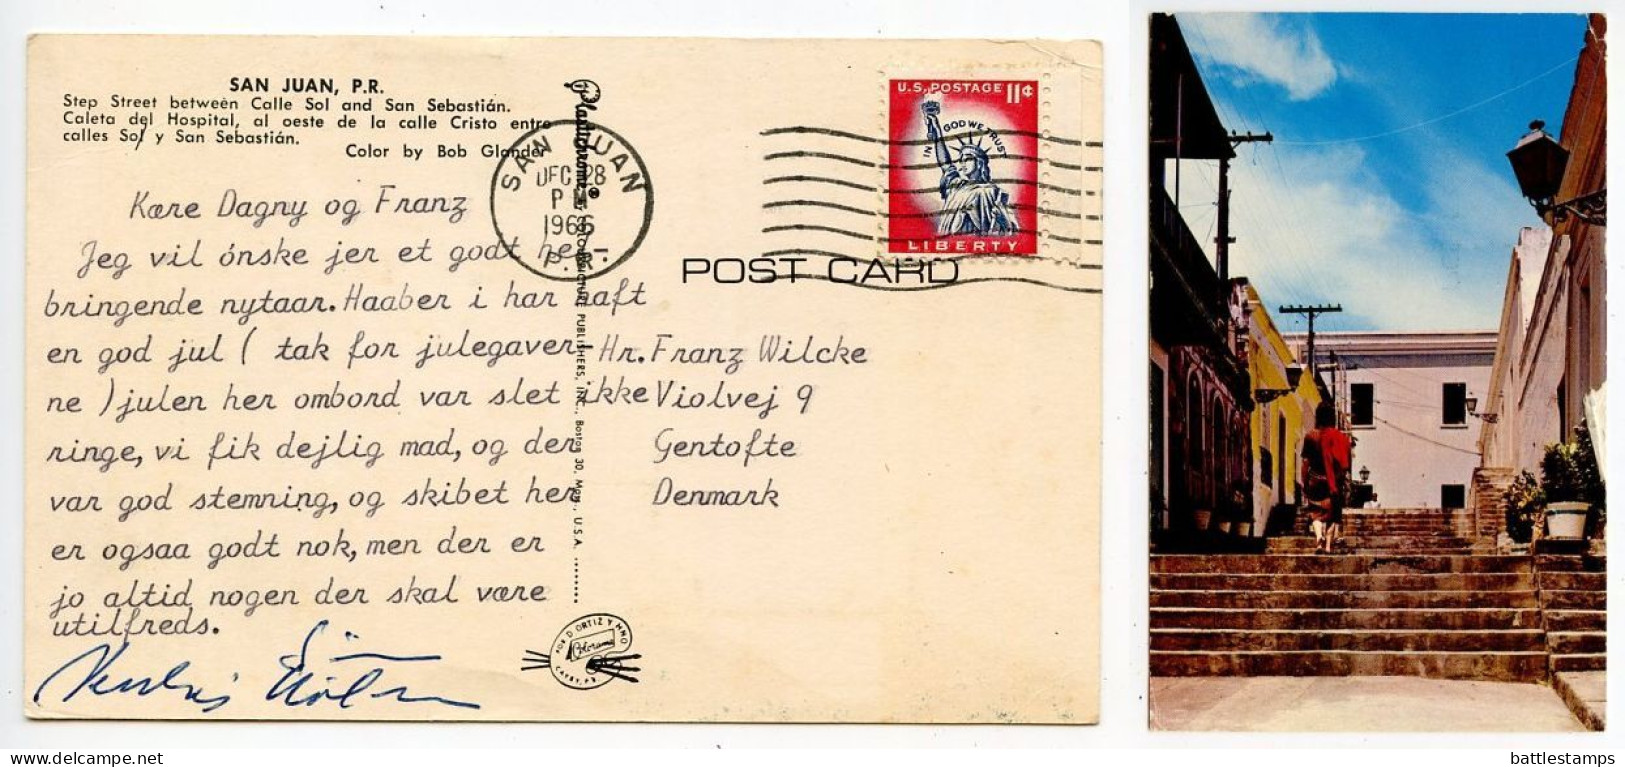 SAN JUAN, P.R.
Step Street between Calle Sol and San Sebastián.
Caleta del Hospital, al oeste de la calle Cristo entre
calles Sol y San Sebastián.
Color by Bob Glander
Plastichrome®
PUBLISHERS, INC., Boston 30, Mass., U.S.A.
SAN JUAN
DEC 28
P
1966
P.R.
U.S. POSTAGE 11¢
IN GOD WE TRUST
LIBERTY
POST CARD
Kære Dagny og Franz
Jeg vil ónske jer et godt he-
bringende nytaar. Haaber i har haft
en god jul ( tak for julegaver-
ne ) julen her ombord var slet ikke
ringe, vi fik dejlig mad, og der
var god stemning, og skibet her
er ogsaa godt nok, men der er
jo altid nogen der skal være
utilfreds.
Hr. Franz Wilcke
Violvej 9
Gentofte
Denmark
POR D. ORTIZ Y HNO
CAYEY, P.R.
battlestamps